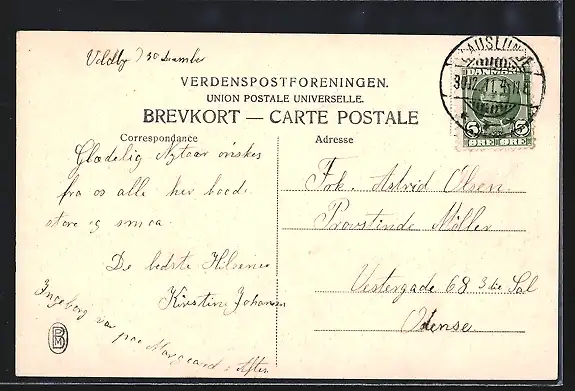 Veldby d 30 December
VERDENSPOSTFORENINGEN.
UNION POSTALE UNIVERSELLE.
BREVKORT — CARTE POSTALE
Correspondance
Glædelig Nytaar ønskes
fra os alle her baade
store og smaa
De bedste Hilsener
Kirstine Johansen
Ingeborg var paa Norgaard i Aften
Adresse
Frk. Astrid Olsen
Provstinde Möller
Vestergade 68 3die Sal
Odense
30.12.11
DANMARK
5 5
ØRE ØRE